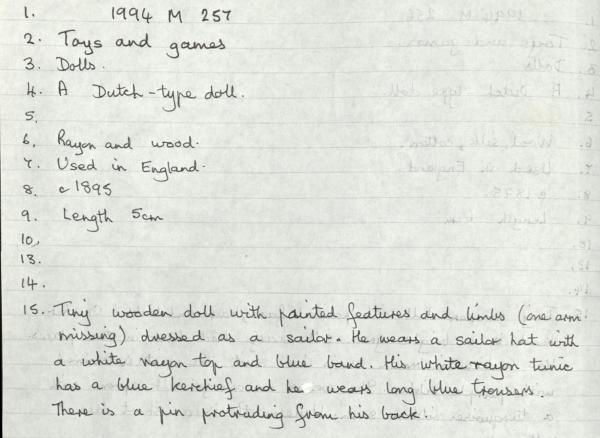 1. 1994 M 257
2. Toys and games
3. Dolls.
4. A Dutch-type doll.
5.
6. Rayon and wood.
7. Used in England.
8. c 1895
9. Length 5cm
10.
13.
14.
15. Tiny wooden doll with painted features and limbs (one arm
missing) dressed as a sailor. He wears a sailor hat with
a white rayon top and blue band. His white rayon tunic
has a blue kerchief and he wears long blue trousers.
There is a pin protruding from his back.